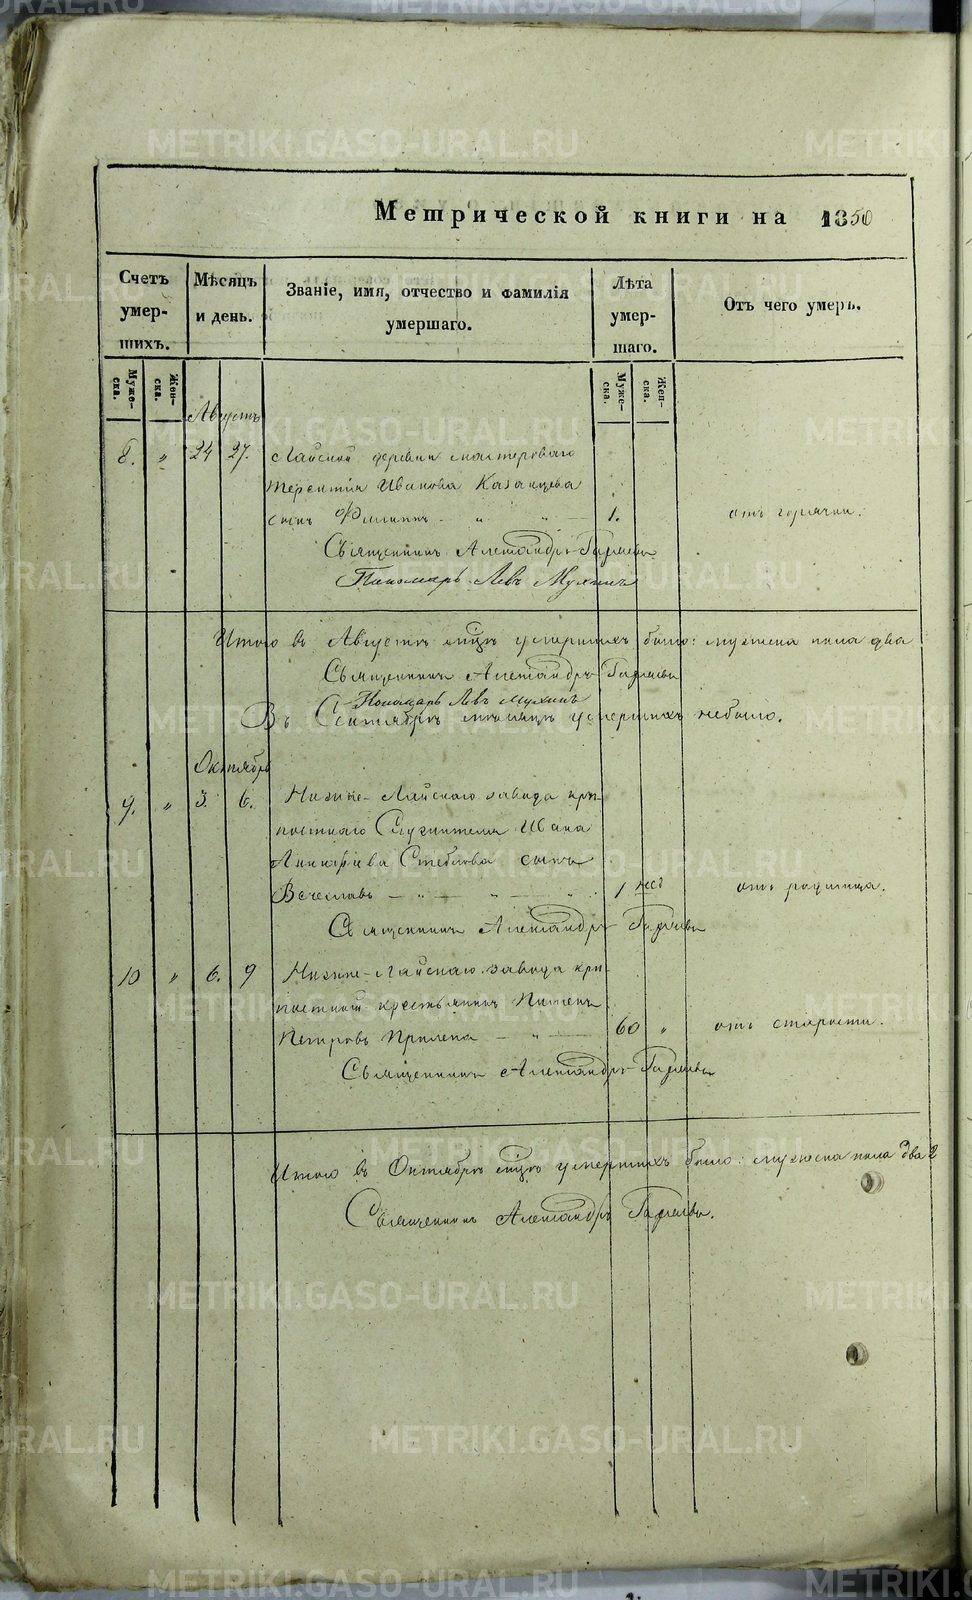 Метрической книги на 1850
Счетъ умер-шихъ.
Мѣсяцъ и день.
Званіе, имя, отчество и фамилія умершаго.
Лѣта умер-шаго.
Отъ чего умеръ.
Муже-ска.
Жен-ска.
Муже-ска.
Жен-ска.
Августъ
8. " 24 27. Лайской деревни мастероваго
Терентія Иванова Казанцева
сынъ Филиппъ - " " - 1. отъ горячки.
Священникъ Александръ
Пономарь Левъ Мухинъ
Итого въ Августѣ мцѣ умершихъ было: мужеска пола два
Священникъ Александръ
Пономарь Левъ Мухинъ
Въ Сентябрѣ мѣсяцѣ умершихъ небыло.
Октябрь
9. " 3. 6. Нижне-Лайскаго завода крѣ-
постнаго Служителя Ивана
Стеблова сынъ
Вечеславъ - " - " - " 1 нед отъ родимца.
Священникъ Александръ
10 " 6. 9 Нижне-Лайскаго завода крѣ-
постной крестьянинъ Пименъ
Петровъ - " - 60 " отъ старости.
Священникъ Александръ
Итого въ Октябрѣ мцѣ умершихъ было: мужеска пола два 2
Священникъ Александръ
METRIKI.GASO-URAL.RU